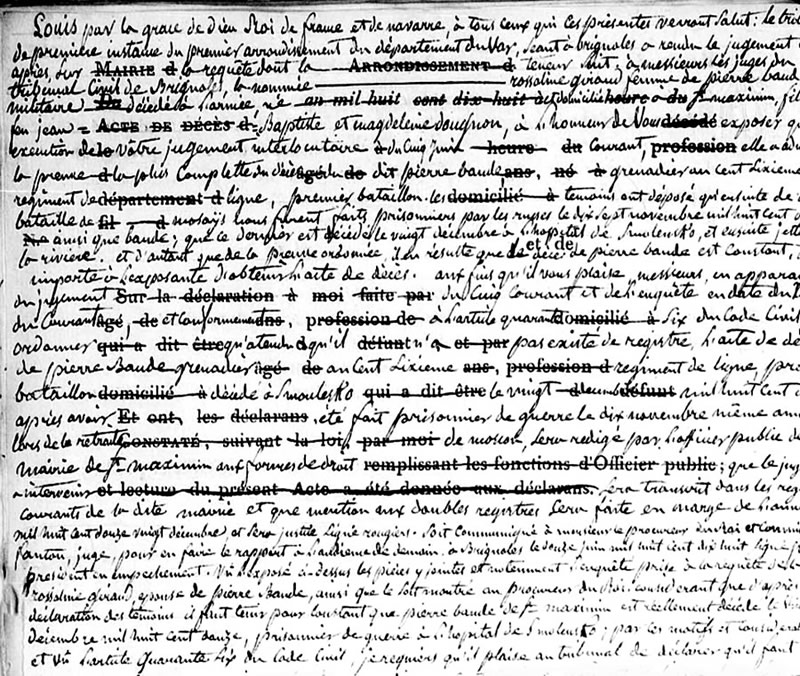 Louis par la grace de dieu Roi de france et de navarre, à tous ceux qui ces présentes verront Salut: le
de première instance du premier arrondissement du département du Var, Séant à brignoles a rendu le jugement
après, Sur MAIRIE d la requête dont la ARRONDISSEMENT d teneur Suit; à messieurs les juges du
tribunal Civil de Brignoles, la nommée rossoline giraud femme de pierre baude
militaire décédé à l'armée, né an mil huit cent dix huit domicilié heure à du St maximin, fil
feu jean ACTE DE DÉCÈS d Baptiste et magdeleine bouchon, à L'honneur de Vous décédé exposer qu
exécution de le Votre jugement interlocutoire à du Cinq Juin heure du Courant, profession elle a
la preuve d la plus Complette du décès âgé du de dit pierre baude ans, né à grenadier au Cent Sixieme
regiment de département d ligne, premier bataillon. les domicilié à temoins ont déposé qu'ensuite de
bataille de fil d mosaïs tous furent faits prisonniers par les russes le dix Sept novembre mil huit cent
ainsi que baude; que ce dernier est décédé le vingt décembre à l'hopital de Smolensko, et ensuite jetté
la riviere. et d'autant que de la preuve ordonnée, il en résulte que le et de décès de pierre baude est Constant,
importe à l'exposante d'obtenir l'acte de décès. aux fins qu'il vous plaise, messieurs, en apparaissant
du jugement Sur la déclaration à moi faite par du Cinq Courant et de l'enquête en date du
du Courant âgé, de et Conformément ans, profession de à l'article quarante domicilié à Six du Code Civil
ordonner qui a dit être qu'attendu d qu'il défunt n'a et par pas existé de registre, l'acte de dé
de pierre Baude grenadier âgé de au Cent Sixieme ans, profession d regiment de ligne, pre
bataillon domicilié à décédé à Smolensko qui a dit être le vingt d decembre défunt mil huit cent
après avoir Et ont, les déclarans, été fait prisonnier de guerre le dix novembre même ann
lors de la retraite CONSTATÉ, suivant la loi, par moi de moscou, Sera redigé par l'officier public de
mairie de St maximin aux formes de droit remplissant les fonctions d'Officier public; que le jug
a intervenir et lecture du présent Acte a été donnée aux déclarans. Sera transcrit dans les reg
Courants de la dite mairie et que mention aux doubles registres Sera faite en marge de l'ann
mil huit cent douze vingt décembre, et Sera justice Signé rougiers. Soit Communiqué à monsieur le procureur du Roi et
fanton, juge, pour en faire le rapport à l'audience de demain. à Brignoles le douze juin mil huit cent dix huit Signé
président en empechement. Vu l'exposé ci-dessus les pièces y jointes et notamment l'enquête prise à la requête de la
rossoline giraud, épouse de pierre Baude, ainsi que le Soit montré au procureur du Roi. Considerant que d'après
déclaration des témoins il faut tenir pour Constant que pierre baude de St maximin est réellement décédé le
décembre mil huit cent douze, prisonnier de guerre à l'hopital de Smolensko; par les motifs et
et Vû l'article Quarante Six du Code Civil, je requiers qu'il plaise au tribunal de déclarer qu'il faut